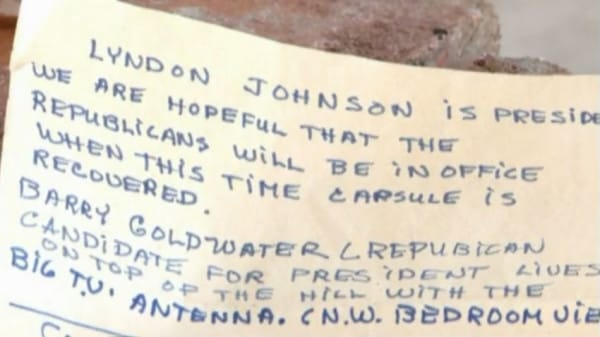 LYNDON JOHNSON iS PRESIDE
WE ARE HOPEFUL THAT THE
REPUBLICANS WILL BE iN OFFICE
WHEN THIS TiME CAPSULE iS
RECOVERED.
BARRY GOLDWATER (REPUBICAN
CANDIDATE FOR PRESIDENT LIVES
ON TOP OF THE HILL WITH THE
BIG T.V. ANTENNA. (N.W. BEDROOM VIE